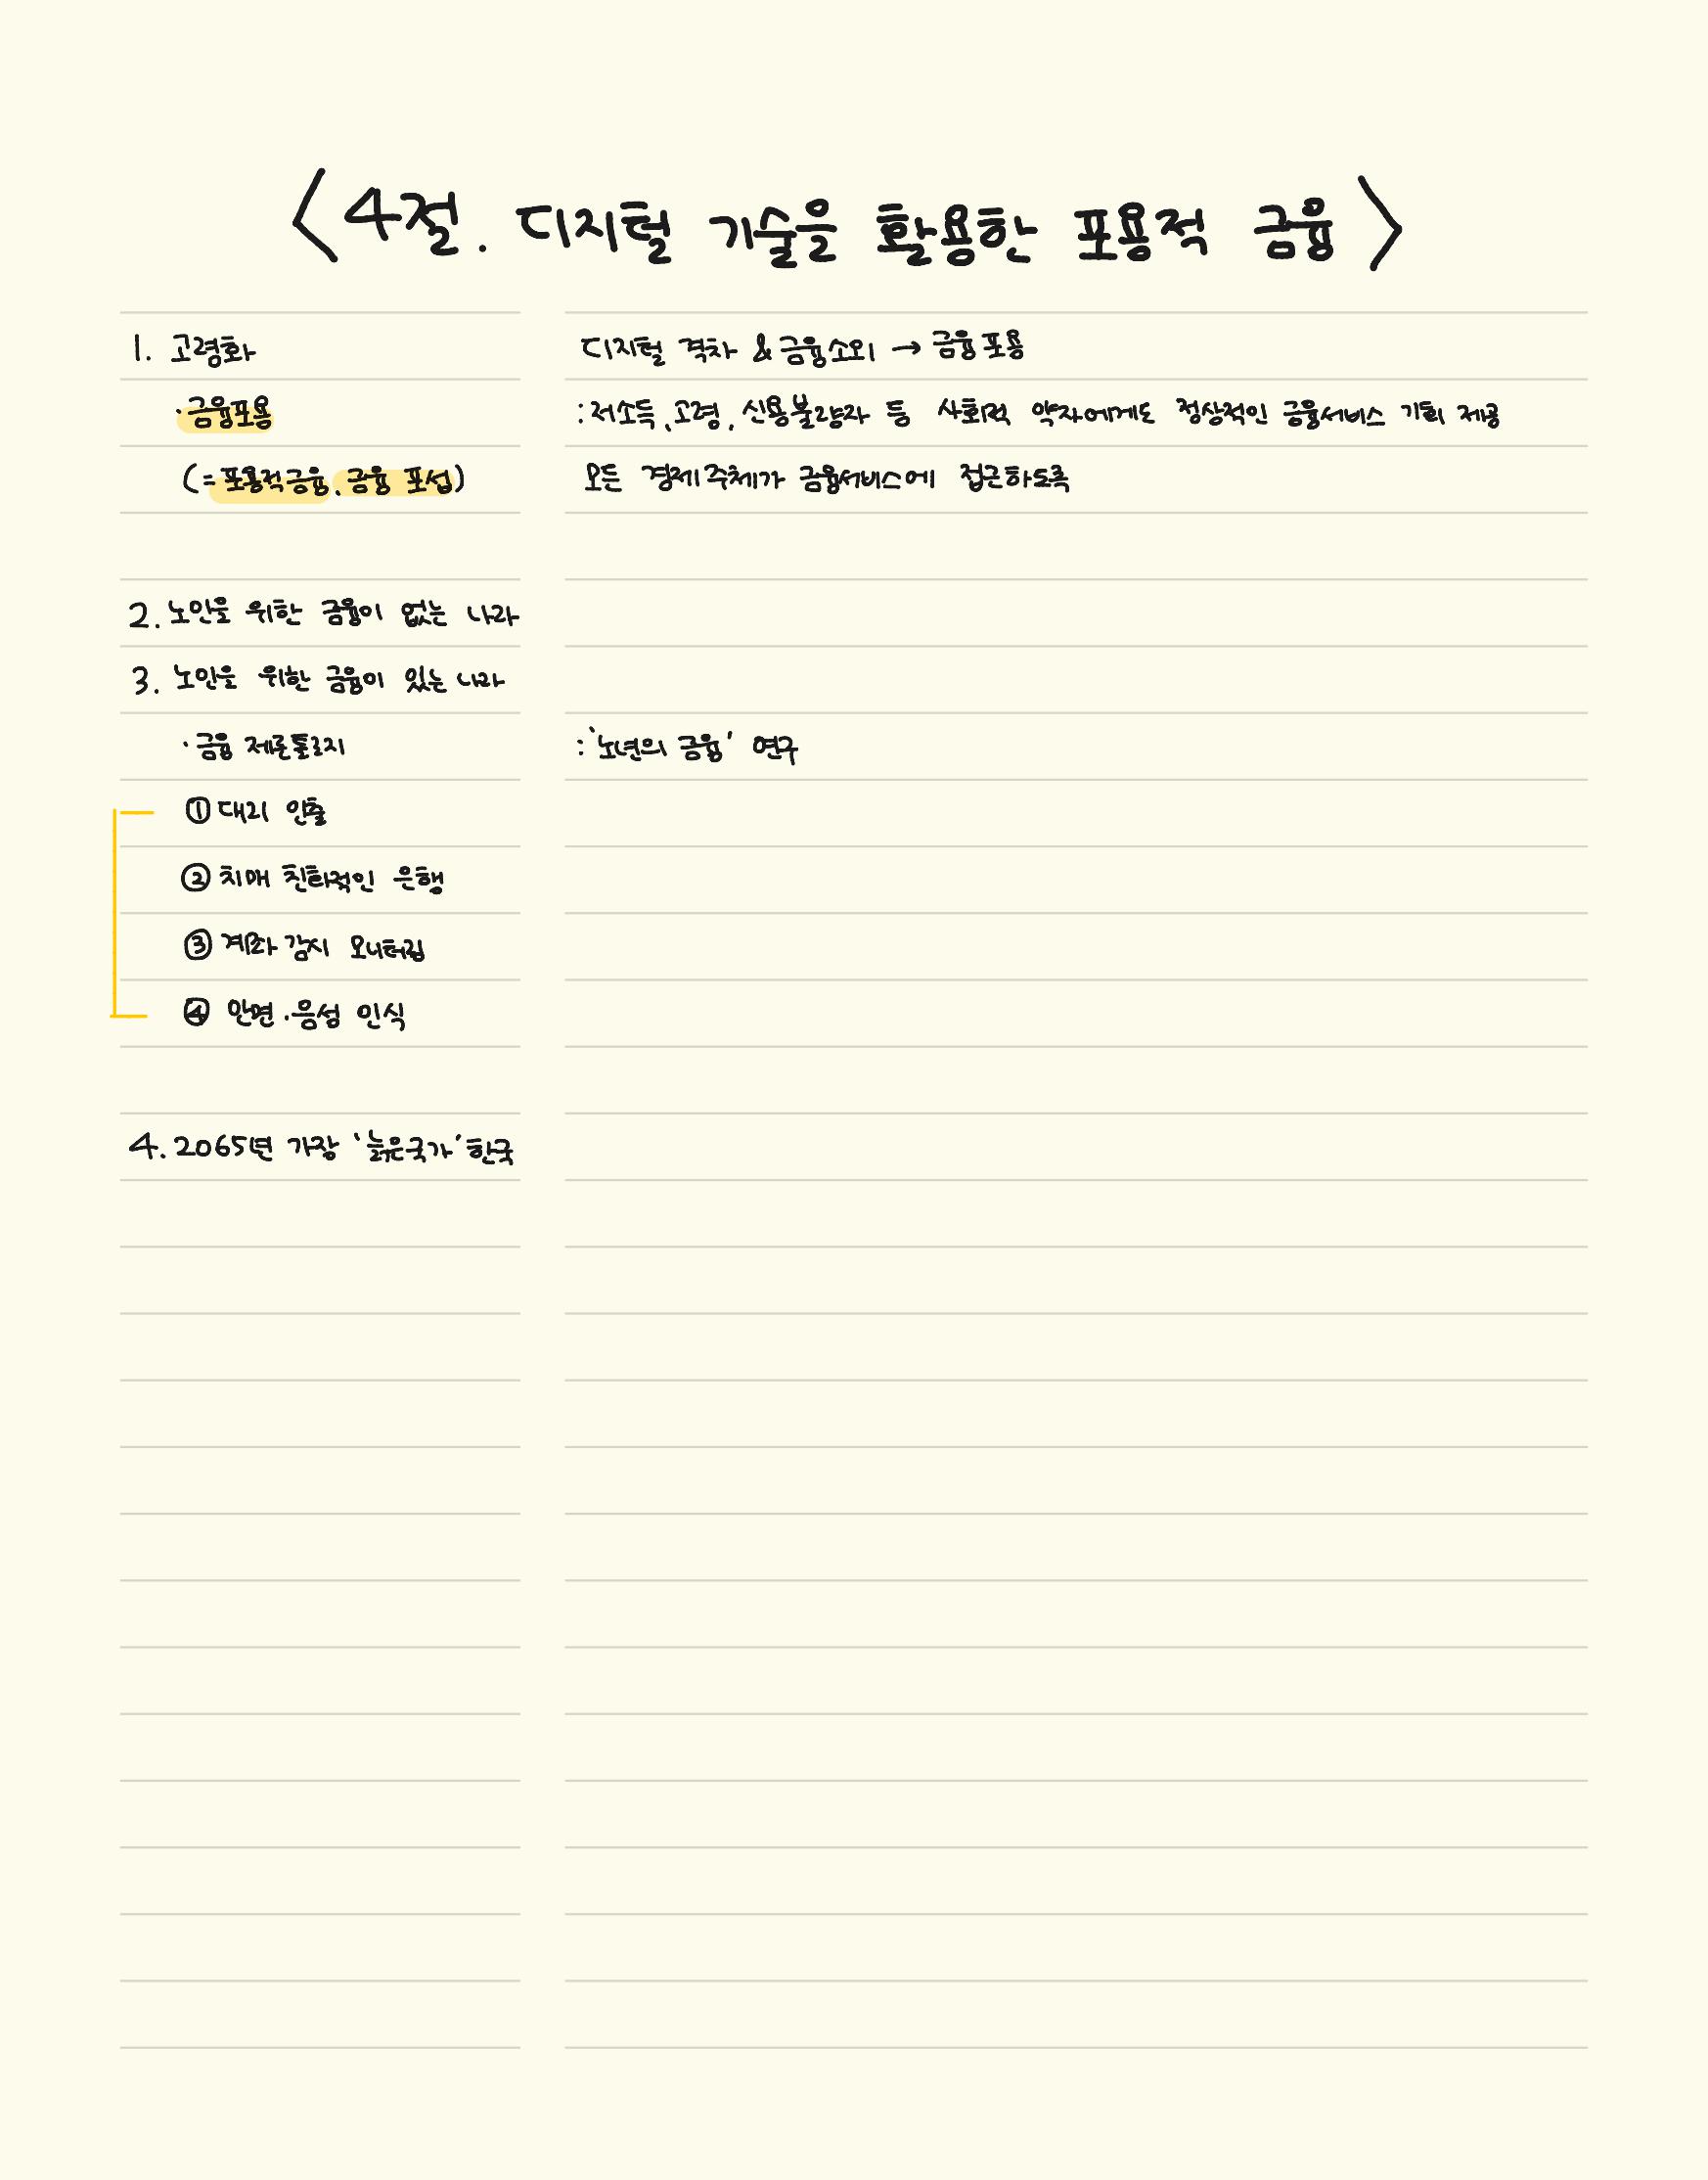 <4절. 디지털 기술을 활용한 포용적 금융>
1. 고령화 디지털 격차 & 금융소외 → 금융포용
·금융포용 :저소득, 고령, 신용불량자 등 사회적 약자에게도 정상적인 금융서비스 기회 제공
(=포용적금융, 금융 포섭) 모든 경제주체가 금융서비스에 접근하도록
2. 노인을 위한 금융이 없는 나라
3. 노인을 위한 금융이 있는 나라
·금융 제론톨로지 :'노년의 금융' 연구
① 대리 인출
② 치매 친화적인 은행
③ 계좌 감시 모니터링
④ 안면·음성 인식
4. 2065년 가장 '늙은국가' 한국